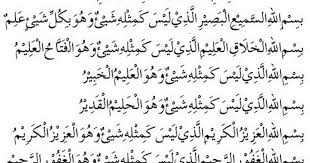 بِسْمِ اللهِ السَّمِيْعِ الْبَصِيْرِ الَّذِيْ لَيْسَ كَمِثْلِهِ شَيْئٌ وَهُوَ بِكُلِّ شَيْئٍ عَلِيْمٌ
بِسْمِ اللهِ الْخَلَاقِ الْعَلِيْمِ الَّذِيْ لَيْسَ كَمِثْلِهِ شَيْئٌ وَهُوَ الْفَتَّاحُ الْعَلِيْمُ
بِسْمِ اللهِ الَّذِيْ لَيْسَ كَمِثْلِهِ شَيْئٌ وَهُوَ الْعَلِيْمُ الْخَبِيْرُ
بِسْمِ اللهِ الَّذِيْ لَيْسَ كَمِثْلِهِ شَيْئٌ وَهُوَ الْحَلِيْمُ الْقَدِيْرُ
بِسْمِ اللهِ الْعَزِيْزِ الْكَرِيْمِ الَّذِيْ لَيْسَ كَمِثْلِهِ شَيْئٌ وَهُوَ الْعَزِيْزُ الْكَرِيْمُ
بِسْمِ اللهِ الْغَفُوْرِ الرَّحِيْمِ الَّذِيْ لَيْسَ كَمِثْلِهِ شَيْئٌ وَهُوَ الْغَفُوْرُ الرَّحِيْمُ